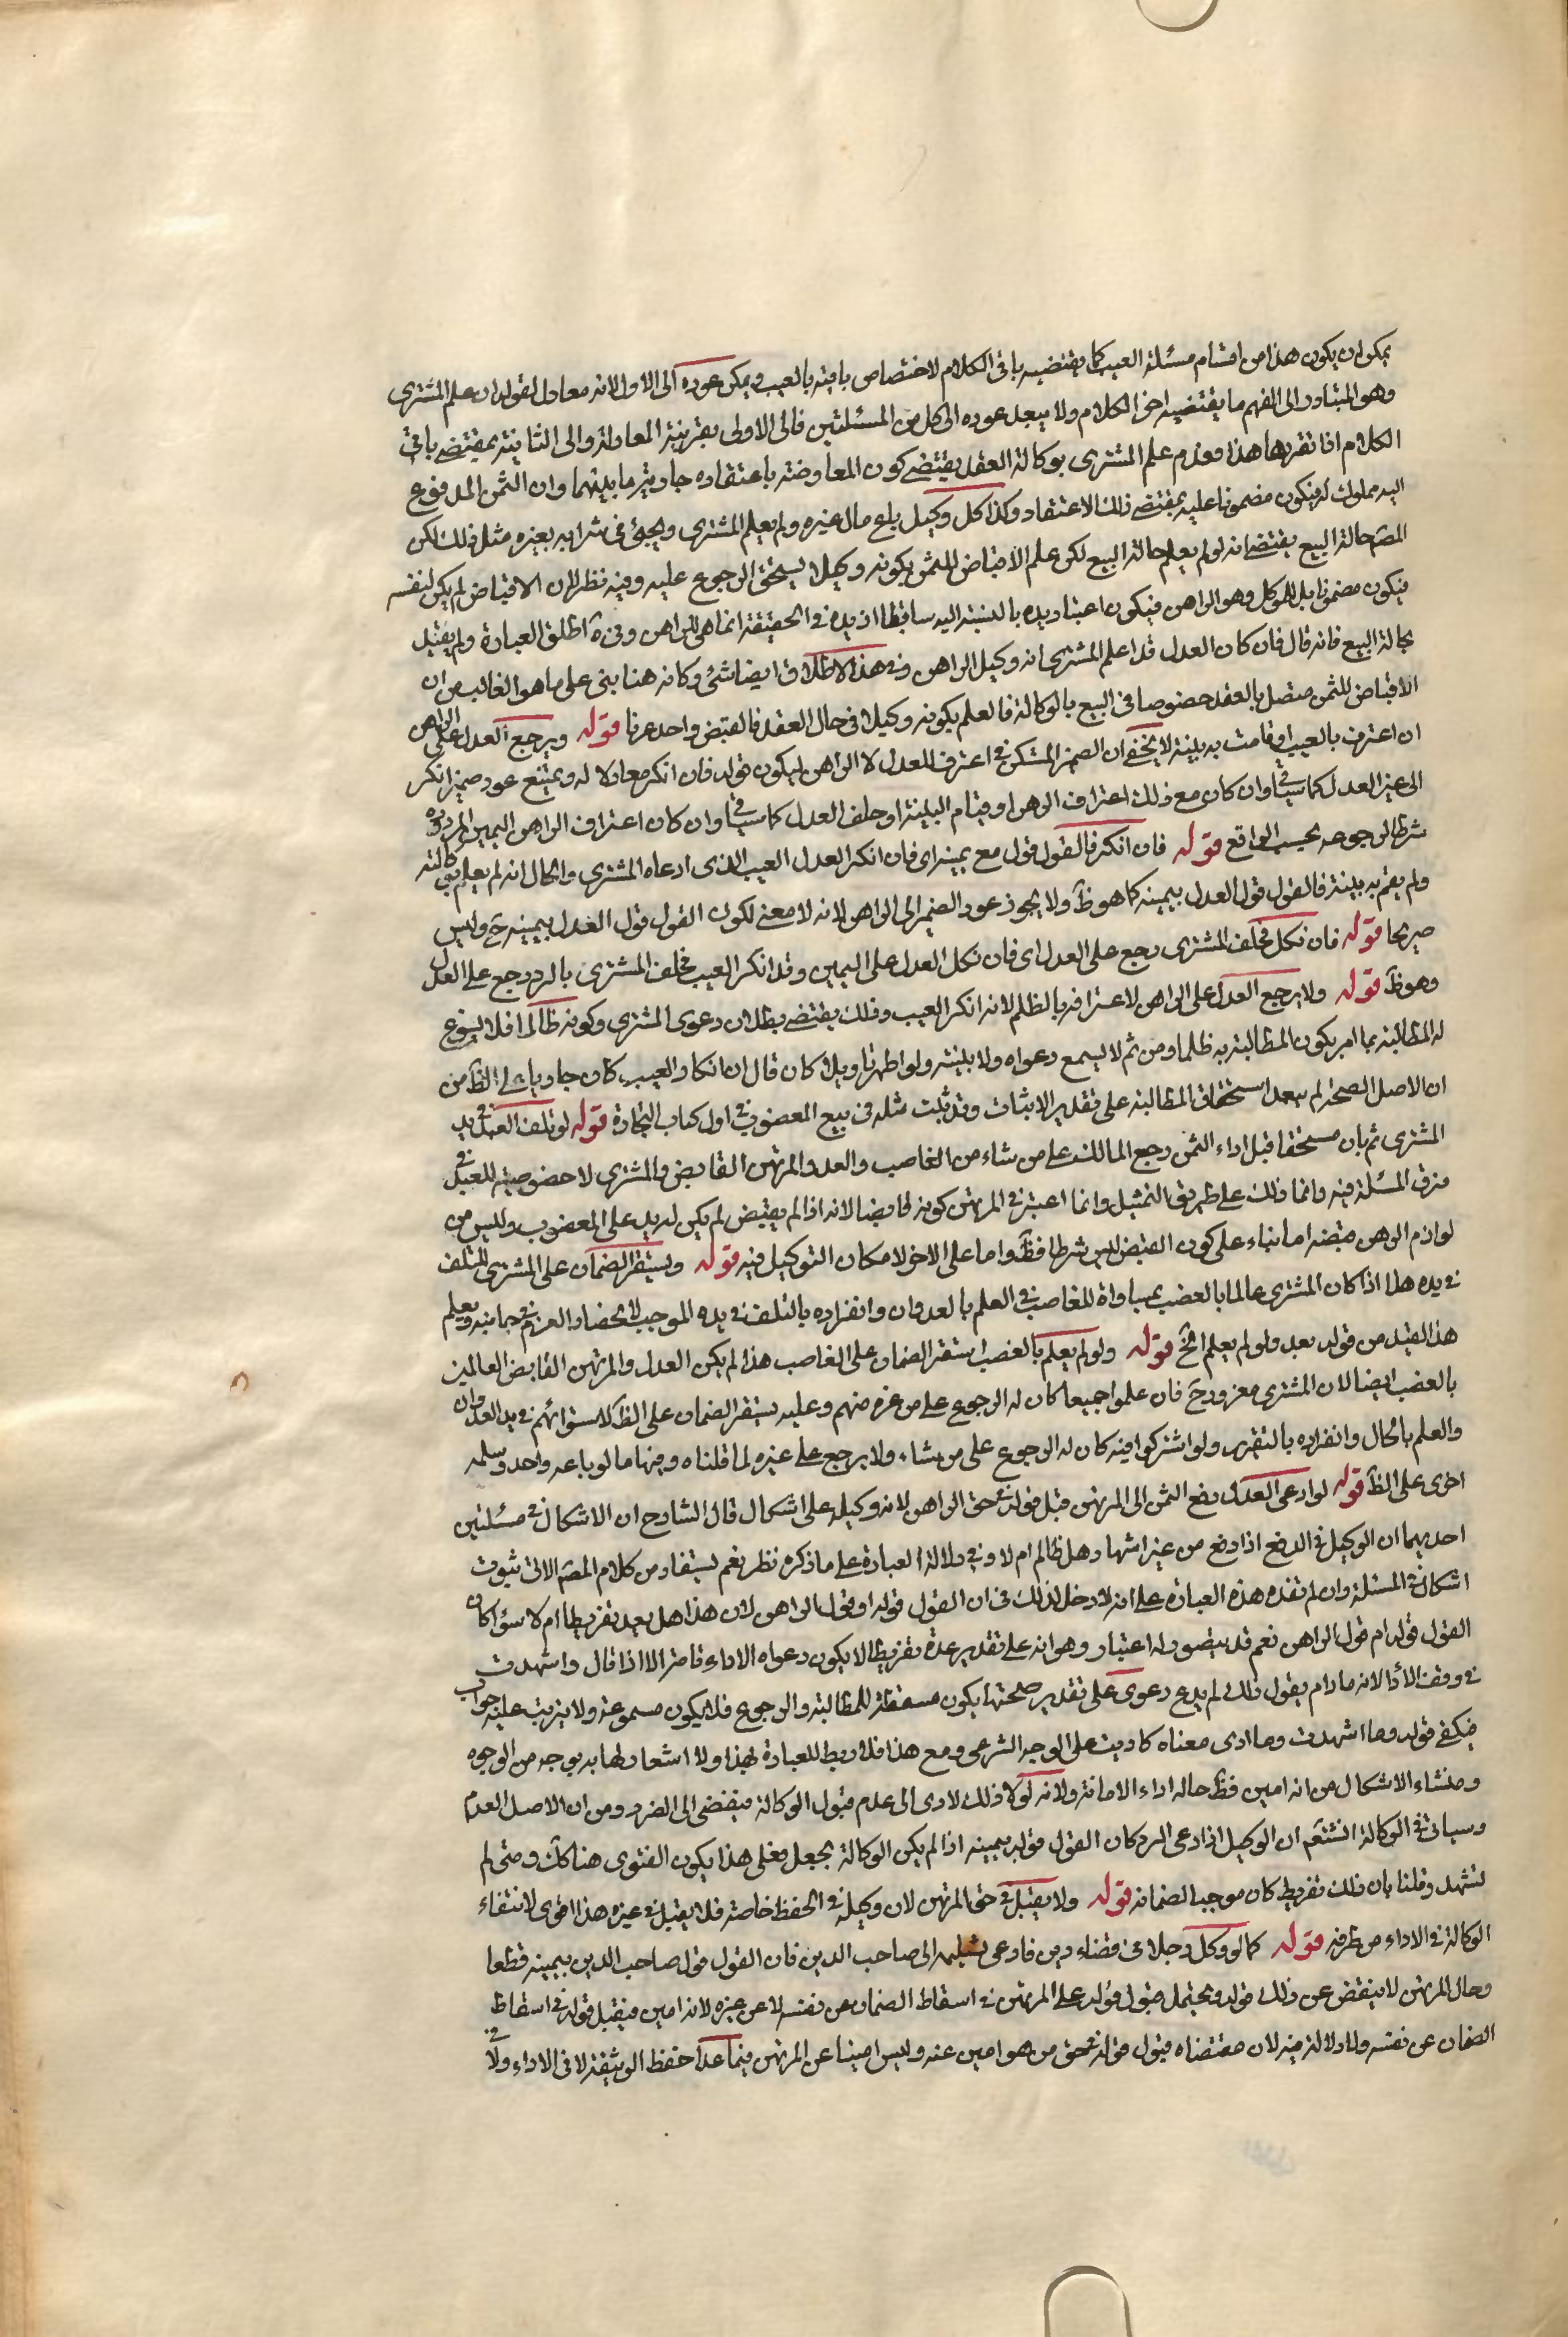 يمكن ان يكون هذا من اقسام مسئلة العيب كما يقتضيه باقى الكلام لاختصاص باقيه بالعيب ويمكن عوده الى الاول لانه معادل لقوله ان علم المشترى
وهو المتبادر الى الفهم ما يقتضيه اخر الكلام ولا يبعد عوده الى كل من المسئلتين فالى الاولى بقرينة المعادلة والى الثانية بمقتضى باقى
الكلام اذا تقرر هذا فعدم علم المشترى بوكالة العقد يقتضى كون المعاوضة باعتقاده جارية ما بينهما وان الثمن المدفوع
اليه مملوك له فيكون مضمونا عليه بمقتضى ذلك الاعتقاد وكذا كل وكيل باع مال غيره ولم يعلم المشترى ويجئ فى شرائه بعينه مثل ذلك لكن
المصّ حالة البيع يقتضى انه لو لم يعلم حالة البيع لكن علم الاقباض للثمن بكونه وكيلا يستحق الرجوع عليه وفيه نظر لان الاقباض لم يكن لنفسه
فيكون مضمونا بل للموكل وهو الراهن فيكون اعتبار يده بالنسبة اليه ساقطا اذ يده فى الحقيقة انما هى للراهن وفى ة اطلق العبارة ولم يقيد
بحالة البيع فانه قال فان كان العدل قد اعلم المشترى انه وكيل الراهن وفى هذا الاطلاق ايضا شئ وكانه هنا بنى على ما هو الغالب من ان
الاقباض للثمن متصل بالعقد خصوصا فى البيع بالوكالة فالعلم بكونه وكيلا فى حال العقد فالقبض واحد عرفا قوله ويرجع العدل على الراهن
ان اعترف بالعيب او قامت به بينة لا يخفى ان الضمير المستكن فى اعترف للعدل لا الراهن ليكون قوله فان انكر معادلا له ويمتنع عود ضمير انكر
الى غير العدل كما سيأتى وان كان مع ذلك اعتراف الراهن او قيام البينة او حلف العدل كما سيأتى وان كان اعتراف الراهن اليمين المردودة
شرطا لرجوعه بحسب الواقع قوله فان انكر فالقول قوله مع يمينه اى فان انكر العدل العيب الذى ادعاه المشترى والحال انه لم يعلم بوكالته
ولم يقم به بينة فالقول قول العدل بيمينه كما هو ظَ ولا يجوز عود الضمير الى الراهن لانه لا معنى لكون القول قول العدل بيمينه حَ وليس
صريحا قوله فان نكل فحلف المشترى رجع على العدل اى فان نكل العدل على اليمين وقد انكر العيب فحلف المشترى بالرد رجع على العدل
وهو ظَ قوله ولا يرجع العدل على الراهن لاعترافه بالظلم لانه انكر العيب وذلك يقتضى بطلان دعوى المشترى وكونه ظالما فلا يسوغ
له المطالبة بما امر بكون المطالبة به ظلما ومن ثم لا يسمع دعواه ولا بينته ولو اظهر تاويلا كان قال ان انكار العيب كان جاريا على الظَ من
ان الاصل الصحة لم يبعد استحقاق المطالبة على تقدير الاثبات وقد ثبت مثله فى بيع المغصوب فى اول كتاب التجارة قوله لو تلف العبد فى يد
المشترى ثم بان مستحقا قبل اداء الثمن رجع المالك على من شاء من الغاصب والعدل والمرتهن القابض والمشترى لا خصوصية للعبد فى
فرق المسئلة فيه وانما ذلك على طريق التمثيل وانما اعتبر فى المرتهن كونه قابضا لانه اذا لم يقبض لم يكن له يد على المغصوب وليس من
لوازم الرهن قبضه اما بناء على كون القبض ليس شرطا فظَ واما على الاخر لامكان التوكيل فيه قوله ويستقر الضمان على المشترى للتلف
فى يده هذا اذا كان المشترى عالما بالغصب لمساواة للغاصب فى العلم بالعدوان وانفراده بالتلف فى يده الموجب لانحصار الغرم فى جانبه ويعلم
هذا القيد من قوله بعد ولو لم يعلم الخَ قوله ولو لم يعلم بالغصب استقر الضمان على الغاصب هذا لم يكن العدل والمرتهن القابض العالمين
بالغصب ايضا لان المشترى مغرور حَ فان علموا جميعا كان له الرجوع على من غره منهم وعليه يستقر الضمان على الظَ لاستوائهم فى يد العدوان
والعلم بالحال وانفراده بالتغرير ولو اشتركوا فيه كان له الرجوع على من شاء ولا يرجع على غيره لما قلناه وفيها ما لو باعه واحد وسلمه
اخرى على الظَ قوله لو ادعى العدل دفع الثمن الى المرتهن قبل قوله فى حق الراهن لانه وكيله على اشكال قال الشارح ان الاشكال فى مسئلتين
احديهما ان الوكيل فى الدفع اذا دفع من غير اشهاد هل ظالم ام لا وفى دلالة العبارة على ما ذكره نظر نعم يستفاد من كلام المصّ الاتى ثبوت
اشكال فى المسئلة وان لم تفده هذه العبارة على انه لا دخل لذلك فى ان القول قوله او قول الراهن لان هذا هل يعد تفريطا ام لا سواء كان
القول قوله ام قول الراهن نعم قد يتصور له اعتبار وهو انه على تقدير عدة تفريطا لا يكون دعواه الاداء قاصرا الا اذا قال واشهدت
فى وقت الأداء لانه ما دام يقول ذلك لم يدع دعوى على تقدير صحتها يكون مسقطة للمطالبة والرجوع فلا يكون مسموعة ولا يترتب عليه جواب
فيكفى قوله وما اشهدت وما ادى معناه كاديت على الوجه الشرعى ومع هذا فلا ربط للعبارة بهذا ولا اشعار لها به بوجه من الوجوه
ومنشاء الاشكال من انه امين فظَ حاله اداء الامانة ولانه لولا ذلك لادى الى عدم قبول الوكالة فيفضى الى الضرر ومن ان الاصل العدم
وسيأتى فى الوكالة انشَ تعَ ان الوكيل اذا ادعى الرد كان القول قوله بيمينه اذا لم يكن الوكالة بجعل فعلى هذا يكون الفتوى هنا كذلك ومتى لم
تشهد وقلنا بان ذلك تفريط كان موجبا لضمانه قوله ولا يقبل فى حق المرتهن لان وكيله فى الحفظ خاصة فلا يقبل فى غيره هذا اقوى لانتفاء
الوكالة فى الاداء من طرفه قوله كما لو وكل رجلا فى قضاء دين فادعى تسليمه الى صاحب الدين فان القول قول صاحب الدين بيمينه قطعا
وحال المرتهن لا ينقض عن ذلك قوله ويحتمل قبول قوله على المرتهن فى اسقاط الضمان عن نفسه لا عن غيره لانه امين فيقبل قوله فى اسقاط
الضمان عن نفسه ولا دلالة فيه لان مقتضاه قبول قوله فى حق من هو امين عنه وليس امينا عن المرتهن فيما عدا حفظ الوثيقة لا فى الاداء ولا